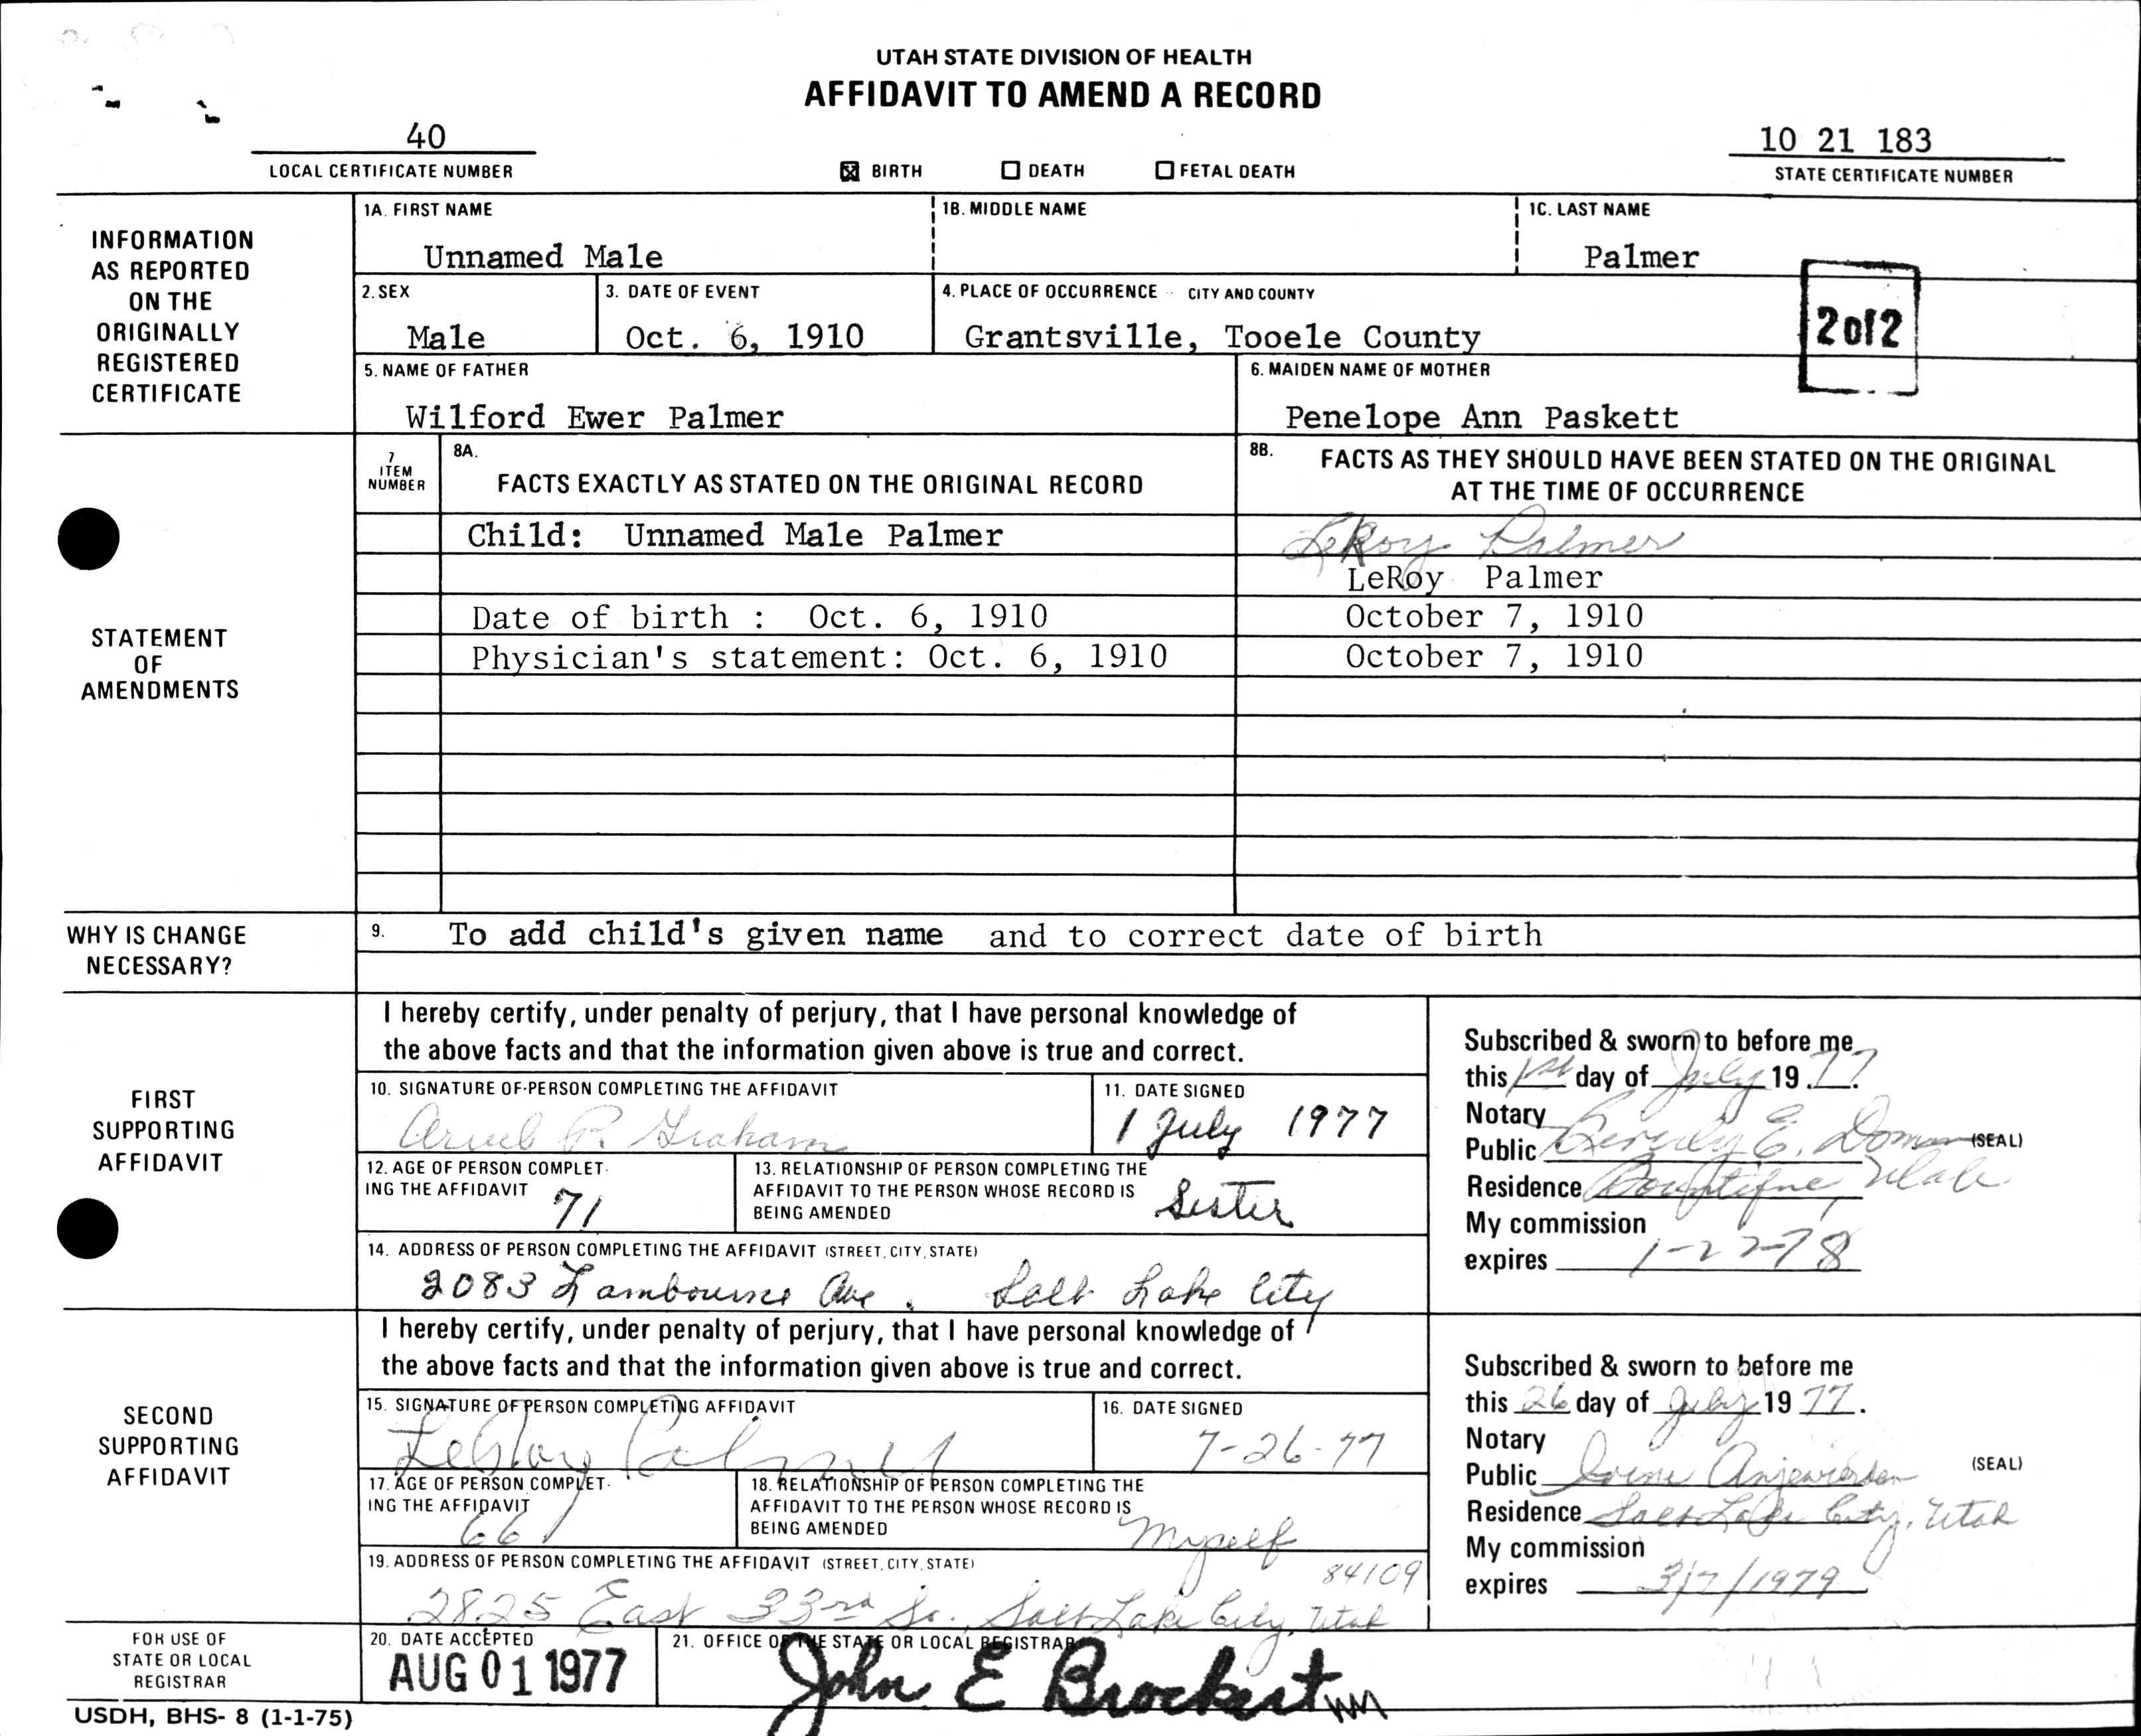 UTAH STATE DIVISION OF HEALTH
AFFIDAVIT TO AMEND A RECORD
40
LOCAL CERTIFICATE NUMBER
☒ BIRTH ☐ DEATH ☐ FETAL DEATH
10 21 183
STATE CERTIFICATE NUMBER
INFORMATION
AS REPORTED
ON THE
ORIGINALLY
REGISTERED
CERTIFICATE
1A. FIRST NAME
Unnamed Male
1B. MIDDLE NAME
1C. LAST NAME
Palmer
2. SEX
Male
3. DATE OF EVENT
Oct. 6, 1910
4. PLACE OF OCCURRENCE CITY AND COUNTY
Grantsville, Tooele County
2 of 2
5. NAME OF FATHER
Wilford Ewer Palmer
6. MAIDEN NAME OF MOTHER
Penelope Ann Paskett
STATEMENT
OF
AMENDMENTS
7
ITEM
NUMBER
8A.
FACTS EXACTLY AS STATED ON THE ORIGINAL RECORD
8B. FACTS AS THEY SHOULD HAVE BEEN STATED ON THE ORIGINAL
AT THE TIME OF OCCURRENCE
Child: Unnamed Male Palmer
LeRoy Palmer
LeRoy Palmer
Date of birth : Oct. 6, 1910
October 7, 1910
Physician's statement: Oct. 6, 1910
October 7, 1910
WHY IS CHANGE
NECESSARY?
9. To add child's given name and to correct date of birth
FIRST
SUPPORTING
AFFIDAVIT
I hereby certify, under penalty of perjury, that I have personal knowledge of
the above facts and that the information given above is true and correct.
10. SIGNATURE OF PERSON COMPLETING THE AFFIDAVIT
R. Graham
11. DATE SIGNED
1 July 1977
12. AGE OF PERSON COMPLET-
ING THE AFFIDAVIT
71
13. RELATIONSHIP OF PERSON COMPLETING THE
AFFIDAVIT TO THE PERSON WHOSE RECORD IS
BEING AMENDED
Sister
14. ADDRESS OF PERSON COMPLETING THE AFFIDAVIT (STREET, CITY, STATE)
2083 Lambourne Ave. Salt Lake City
Subscribed & sworn to before me
this 1st day of July 19 77.
Notary
Public Beverly E. (SEAL)
Residence Bountiful, Utah
My commission
expires 1-22-78
SECOND
SUPPORTING
AFFIDAVIT
I hereby certify, under penalty of perjury, that I have personal knowledge of
the above facts and that the information given above is true and correct.
15. SIGNATURE OF PERSON COMPLETING AFFIDAVIT
LeRoy Palmer
16. DATE SIGNED
7-26-77
17. AGE OF PERSON COMPLET-
ING THE AFFIDAVIT
66
18. RELATIONSHIP OF PERSON COMPLETING THE
AFFIDAVIT TO THE PERSON WHOSE RECORD IS
BEING AMENDED
Myself
19. ADDRESS OF PERSON COMPLETING THE AFFIDAVIT (STREET, CITY, STATE)
84109
2825 East 33rd So., Salt Lake City, Utah
Subscribed & sworn to before me
this 26 day of July 19 77.
Notary
Public Irene (SEAL)
Residence Salt Lake City, Utah
My commission
expires 3/7/1979
FOR USE OF
STATE OR LOCAL
REGISTRAR
20. DATE ACCEPTED
AUG 01 1977
21. OFFICE OF THE STATE OR LOCAL REGISTRAR
John E Brockert
USDH, BHS- 8 (1-1-75)